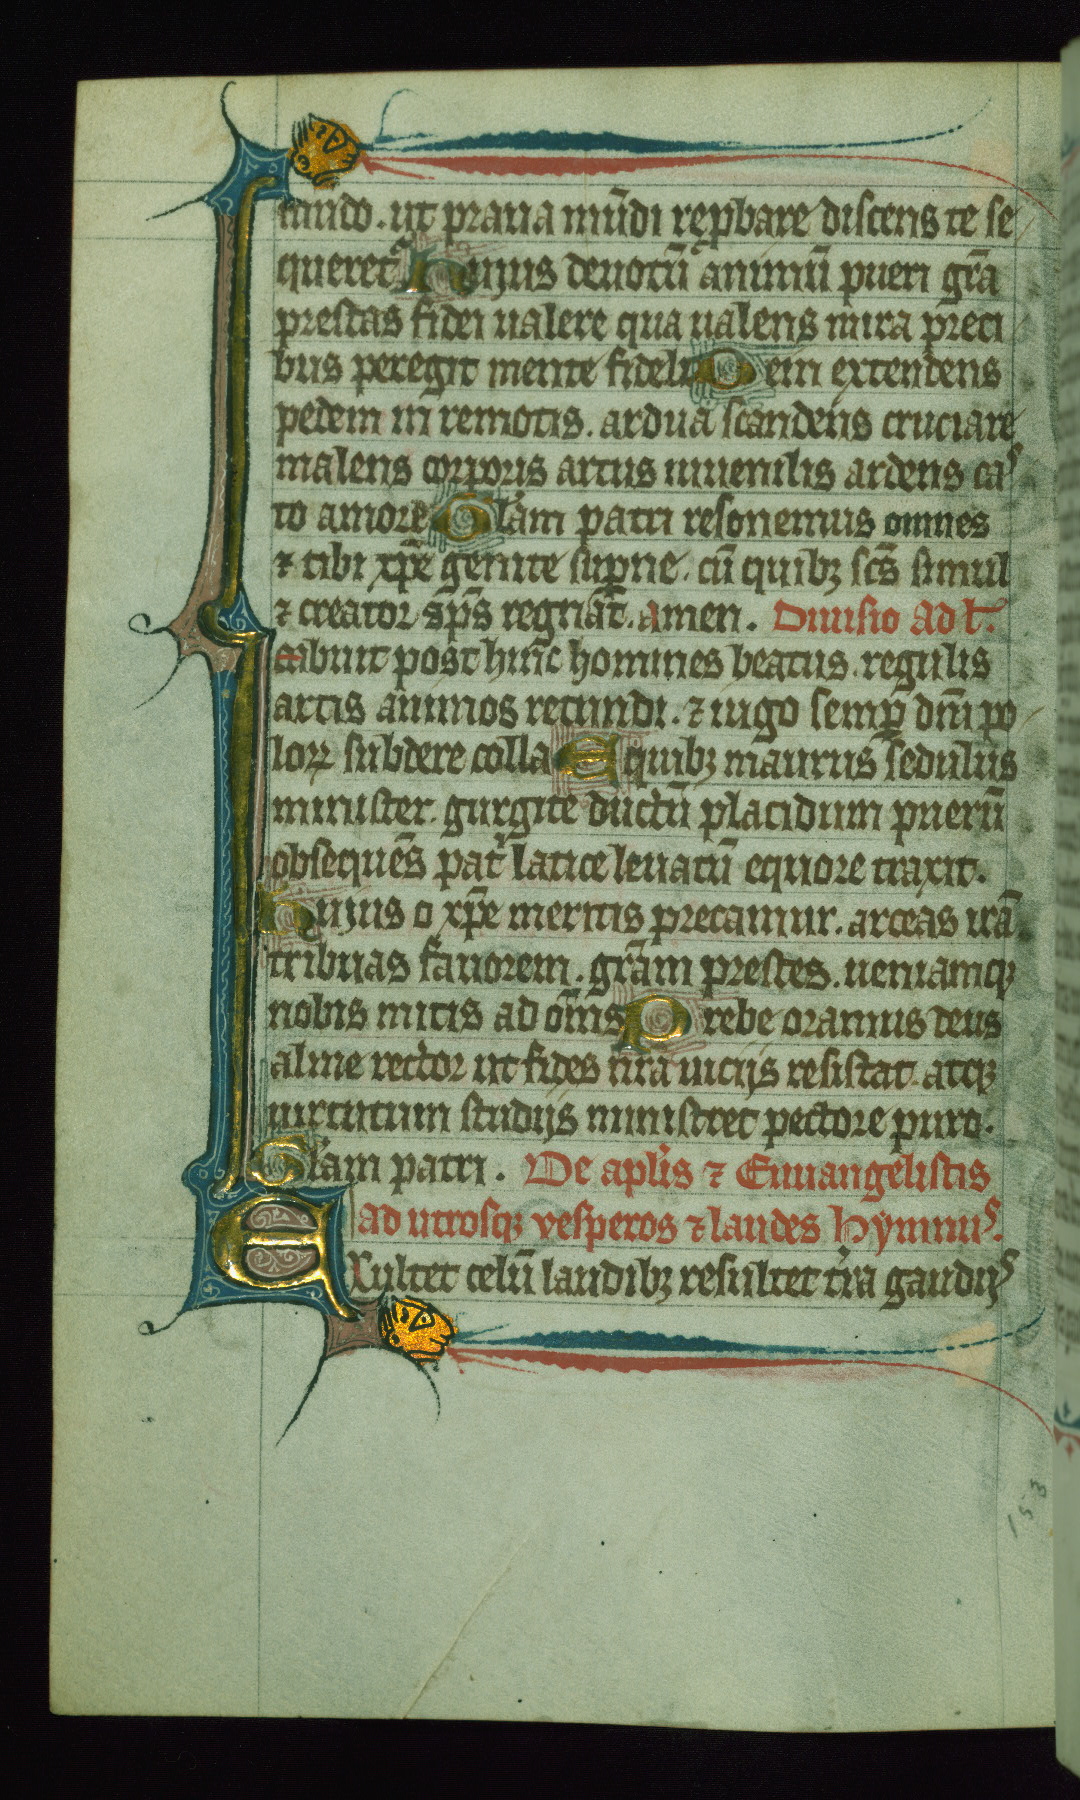 mido. ut praua mūdi rep̱bare discens te se
queret̄ huius deuotū animū pueri gr̄a
prestas fidei ualere qua ualens mira preci
bus peregit mente fideli Dein extendens
pedem in remotis. ardua scandens cruciare
malens corporis artus iuuenilis ardens caˢ
to amore Gl̄am patri resonemus omnes
⁊ tibi xp̄e genite sup̄ne. cū quibꝫ sc̄s simul
⁊ creator sp̄s regnāt. amen. Diuisio ad lˉ.
Cribuit post hinc̄ homines beatus. regulis
artis animos retundi. ⁊ iugo semp̄ dn̄i po
loꝝ subdere colla E quibꝫ maurus sedulus
minister. gurgite ductū placidum puerū
obsequēs pat̄ latice leuatū equore traxit.
Huius o xp̄e meritis precamur. arceas irā
tribuas fauorem. gr̄am prestes. ueniamqꝫ
nobis mitis ad om̄is Prebe oramus deus
alme rector ut fides nr̄a uicijs resistat. atqꝫ
uirtutum studijs ministret pectore puro.
Gl̄am patri. De apl̄is ⁊ Euuangelistis
ad utrosqꝫ vesperos ⁊ laudes hymnuˢ.
EXultet celū laudibꝫ resultet tr̄a gaudijˢ
153